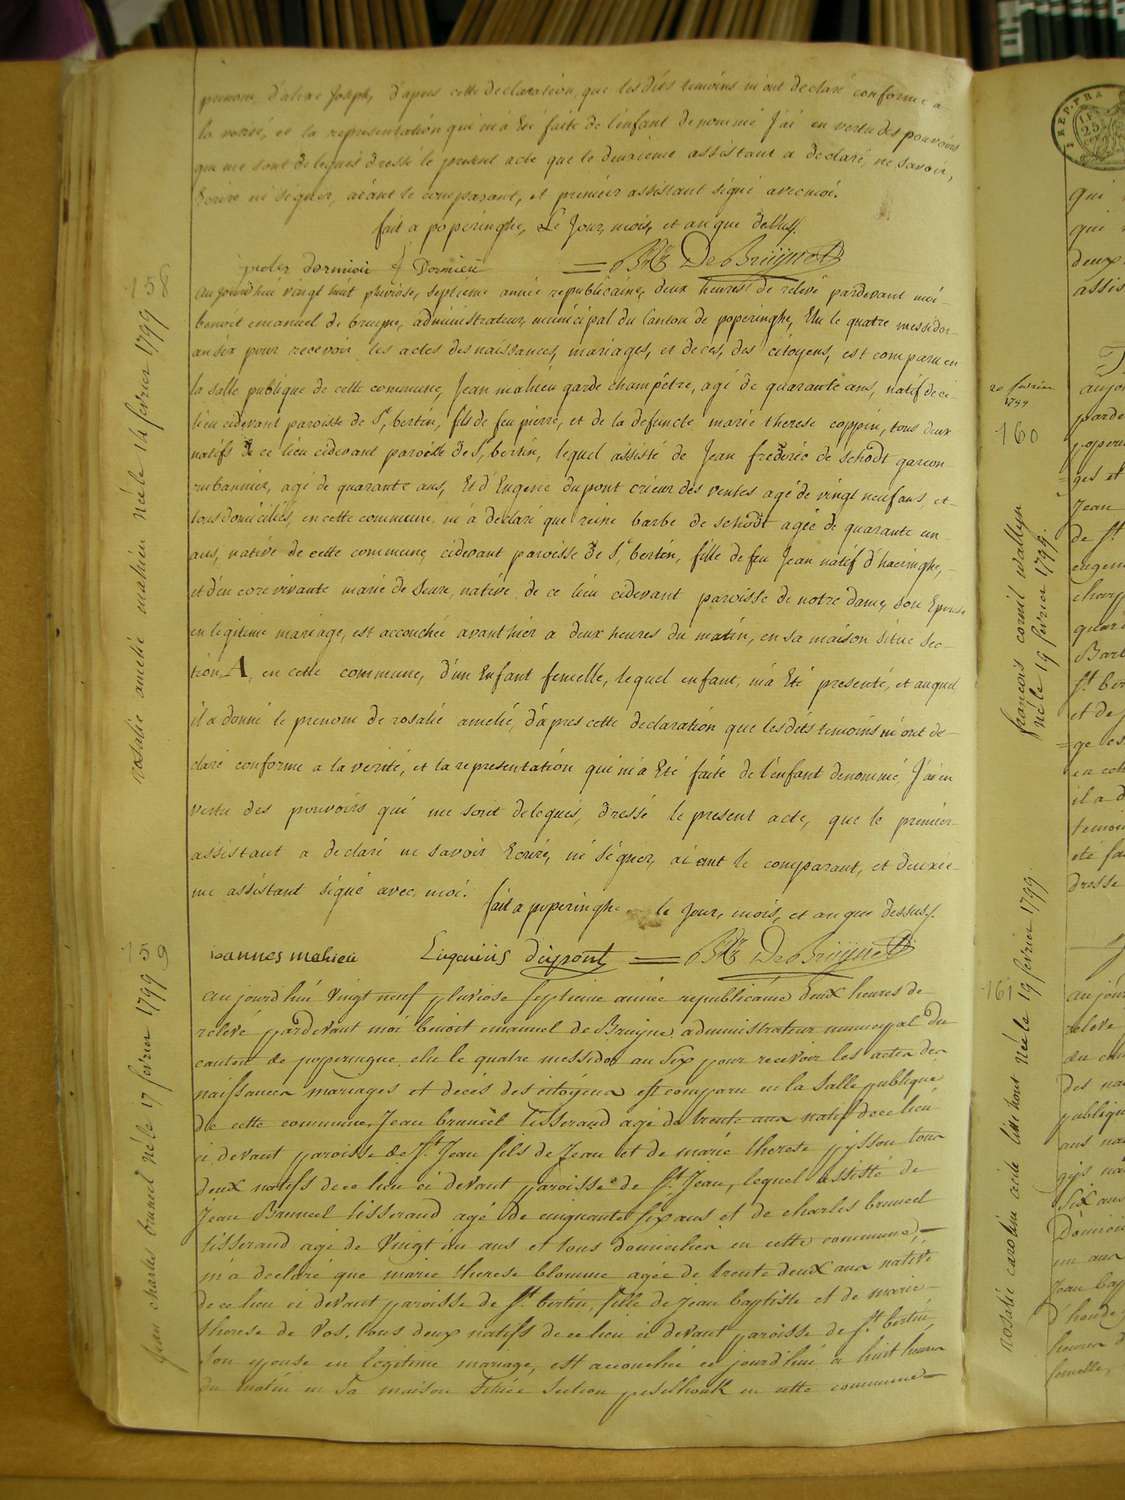 prenom d'alexe Joseph, d'apres cette declaration, que lesdits temoins m'ont declaré conforme a
la verité, et la representation qui m'a Eté faite de l'enfant denommé J'ai en vertu des pouvoirs
qui me sont delegues dressé le present acte que le deuxieme assistant a declaré, ne savoir,
Ecrire ni signer, aiant le comparant, et premier assistant signé avec moi.
fait a poperinghe, Le Jour, mois, et an que dessus.
Dormieu = De Bruyne
158
rosalie amelie mahieu née le 14 fevrier 1799
aujourdhui vingt huit pluviose, septieme année republicaine, deux heures de relevé pardevant moi
benoit emanuel de bruyne, administrateur municipal du Canton de poperinghe, Elu le quatre messidor
an six pour recevoir les actes des naissances, mariages, et deces, des citoyens, est comparu en
la salle publique de cette commune, Jean mahieu garde champêtre, agé de quarante ans, natif de ce
lieu cidevant paroisse de St bertin, fils de feu pierre, et de la defuncte marie therese coppin, tous deux
natifs de ce lieu cidevant paroisse de St bertin, lequel assisté de Jean frederic de schodt garcon
rubannier, agé de quarante ans, Et d'Eugene dupont crieur des ventes agé de vingt neuf ans, et
tous domiciliés, en cette commune, m'a declaré que reine barbe de schodt agée de quarante un
ans, native de cette commune, cidevant paroisse de St bertin, fille de feu Jean natif d'haeringhe,
et d'encore vivante marie de Seure, native de ce lieu cidevant paroisse de notre dame, son Epouse
en legitime mariage, est accouchée avanthier a deux heures du matin, en sa maison située sec-
tion A, en cette commune, d'un Enfant femelle, lequel enfant, m'a Eté presenté, et auquel
il a donné le prenom de rosalie amelie, d'apres cette declaration que lesdits temoins m'ont de-
claré conforme a la verité, et la representation qui m'a Eté faite de l'enfant denommé, J'ai en
vertu des pouvoirs qui me sont delegués, dressé le present acte, que le premier
assistant a declaré ne savoir Ecrire, ni signer, aiant le comparant, et deuxie-
me assistant signé avec moi.
fait a poperinghe le Jour, mois, et an que dessus.
ioannes mahieu Eugenius dupont = De Bruyne
159
Jean charles bruneel né le 17 fevrier 1799
aujourd'hui vingt neuf pluviose septieme année republicaine deux heures de
relevé pardevant moi benoit emanuel de Bruyne administrateur municipal du
canton de popperingue elu le quatre messidor an Six pour recevoir les actes des
naissances mariages et décès des citoyens est comparu en la Salle publique
de cette commune Jean bruneel tisserand agé de trente ans natif de ce lieu
ci devant paroisse de St Jean fils de Jean et de marie therese pyssou tous
deux natifs de ce lieu ci devant paroisse de St Jean, lequel assisté de
Jean Bruneel tisserand agé de cinquante six ans et de charles bruneel
tisserand agé de vingt six ans et tous domiciliés en cette commune,
m'a declaré que marie therese blomme agée de trente deux ans native
de ce lieu ci devant paroisse de St bertin, fille de Jean baptiste et de marie
therese de Vos, tous deux natifs de ce lieu ci devant paroisse de St bertin,
son epouse en légitime mariage, est accouchée ce jourd'hui a huit heures
du matin en Sa maison Située Section peselhouk en cette commune
20 fevrier
1799
160
francois corneil wallyn
né le 19 fevrier 1799
161
rosalie caroline née le 19 fevrier 1799
qui
qui
deux
assis
aujou
parde
poperi
ges et
Jean
de St
eugene
quara
Bart
St ber
et de
il a d
temoi
eté fa
dressé
aujour
releve
du can
des nai
publiqu
ans na
Six ans
Jean bap
d'honde
heures d
femelle,